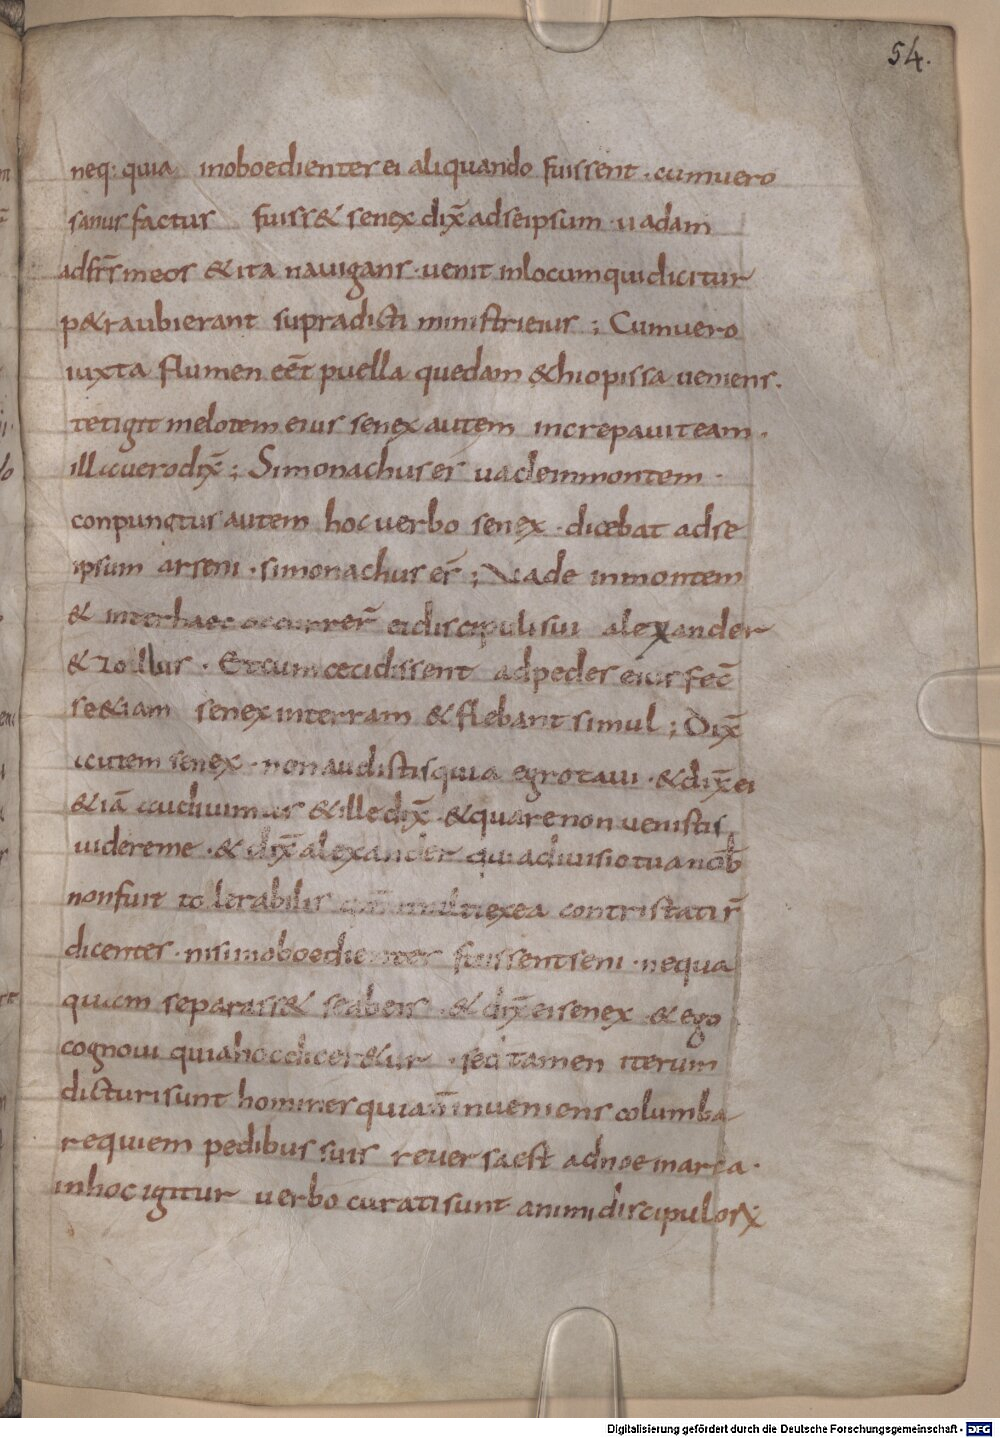 54.
neq: quia inoboedienter ei aliquando fuissent · cumuero
sanus factus fuiss& senex dix̄ adseipsum · uadam
adfr̄s meos & ita nauigans · uenit inlocum quidicitur
p&ra ubi erant supradicti ministri eius ; Cumuero
iuxta flumen eēt puella quedam &hiopissa ueniens.
tetigit melotem eius senex autem increpauit eam ·
illa uero dix̄ ; Simonachus es uade inmontem ·
conpunctus autem hoc uerbo senex · dicebat adse
ipsum arseni · simonachus es̄ ; Vade inmontem
& inter haec occurrer̄ ei discipuli sui alexander
& zoilus · Et cum cecidissent adpedes eius fec̄
se &iam senex interram & flebant simul ; Dix̄
autem senex · non audistis quia egrotaui · & dix̄ ei
&iā audiuimus & ille dix̄ · & quare non uenistis
uidere me · & dix̄ alexander quia diuisio tua nob̄
non fuit tollerabilis multi exea contristati s̄
dicentes · nisi inoboedienter fuissent seni · nequa
quam separass& se abeis · & dix̄ ei senex · & ego
cognoui quia hoc dicer&ur · sed tamen iterum
dicturi sunt homines quia n̄ inueniens columba
requiem pedibus suis reuersa est adnoe in arca ·
inhoc igitur uerbo curati sunt animi discipuloꝝ
Digitalisierung gefördert durch die Deutsche Forschungsgemeinschaft - DFG